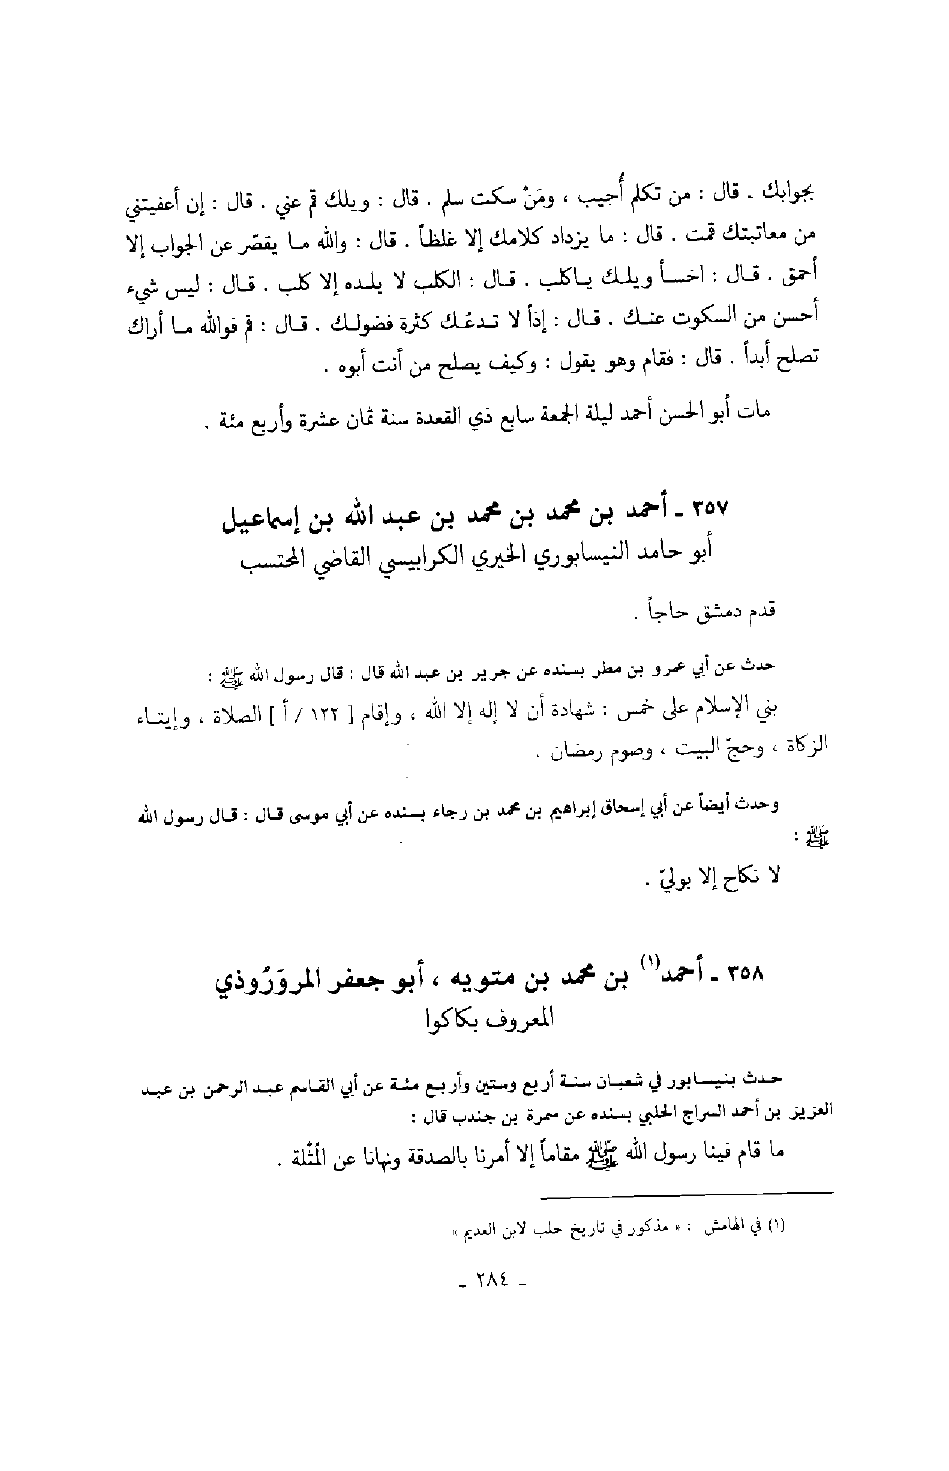 بجوابك . قال : من تكلم أُجيب ، ومَنْ سكت سلم . قال : ويلك قم عني . قال : إن أعفيتني
من معاتبتك قمت . قال : ما يزداد كلامك إلا غلظاً . قال : والله ما يقصّر عن الجواب إلا
أحمق . قال : اخسأ ويلك ياكلب . قال : الكلب لا يلده إلا كلب . قال : ليس شيء
أحسن من السكوت عنك . قال : إذاً لا تدعُك كثرة فضولك . قال : قم فوالله ما أراك
تصلح أبداً . قال : فقام وهو يقول : وكيف يصلح من أنت أبوه .
مات أبو الحسن أحمد ليلة الجمعة سابع ذي القعدة سنة ثمان عشرة وأربع مئة .
٣٥٧ ـ أحمد بن محمد بن محمد بن عبد الله بن إسماعيل
أبو حامد النيسابوري الحيري الكرابيسي القاضي المحتسب
قدم دمشق حاجاً .
حدث عن أبي عمرو بن مطر بسنده عن جرير بن عبد الله قال : قال رسول الله ﷺ :
بني الإسلام على خمس : شهادة أن لا إله إلا الله ، وإقام [ ١٢٢ / أ ] الصلاة ، وإيتاء
الزكاة ، وحجّ البيت ، وصوم رمضان .
وحدث أيضاً عن أبي إسحاق إبراهيم بن محمد بن رجاء بسنده عن أبي موسى قال : قال رسول الله
ﷺ :
لا نكاح إلا بوليّ .
٣٥٨ ـ أحمد(١) بن محمد بن متويه ، أبو جعفر المروَرُوذي
المعروف بكاكوا
حدث بنيسابور في شعبان سنة أربع وستين وأربع مئة عن أبي القاسم عبد الرحمن بن عبد
العزيز بن أحمد السراج الحلبي بسنده عن سمرة بن جندب قال :
ما قام فينا رسول الله ﷺ مقاماً إلا أمرنا بالصدقة ونهانا عن المُثْلة .
(١) في الهامش : « مذكور في تاريخ حلب لابن العديم »
ـ ٢٨٤ ـ